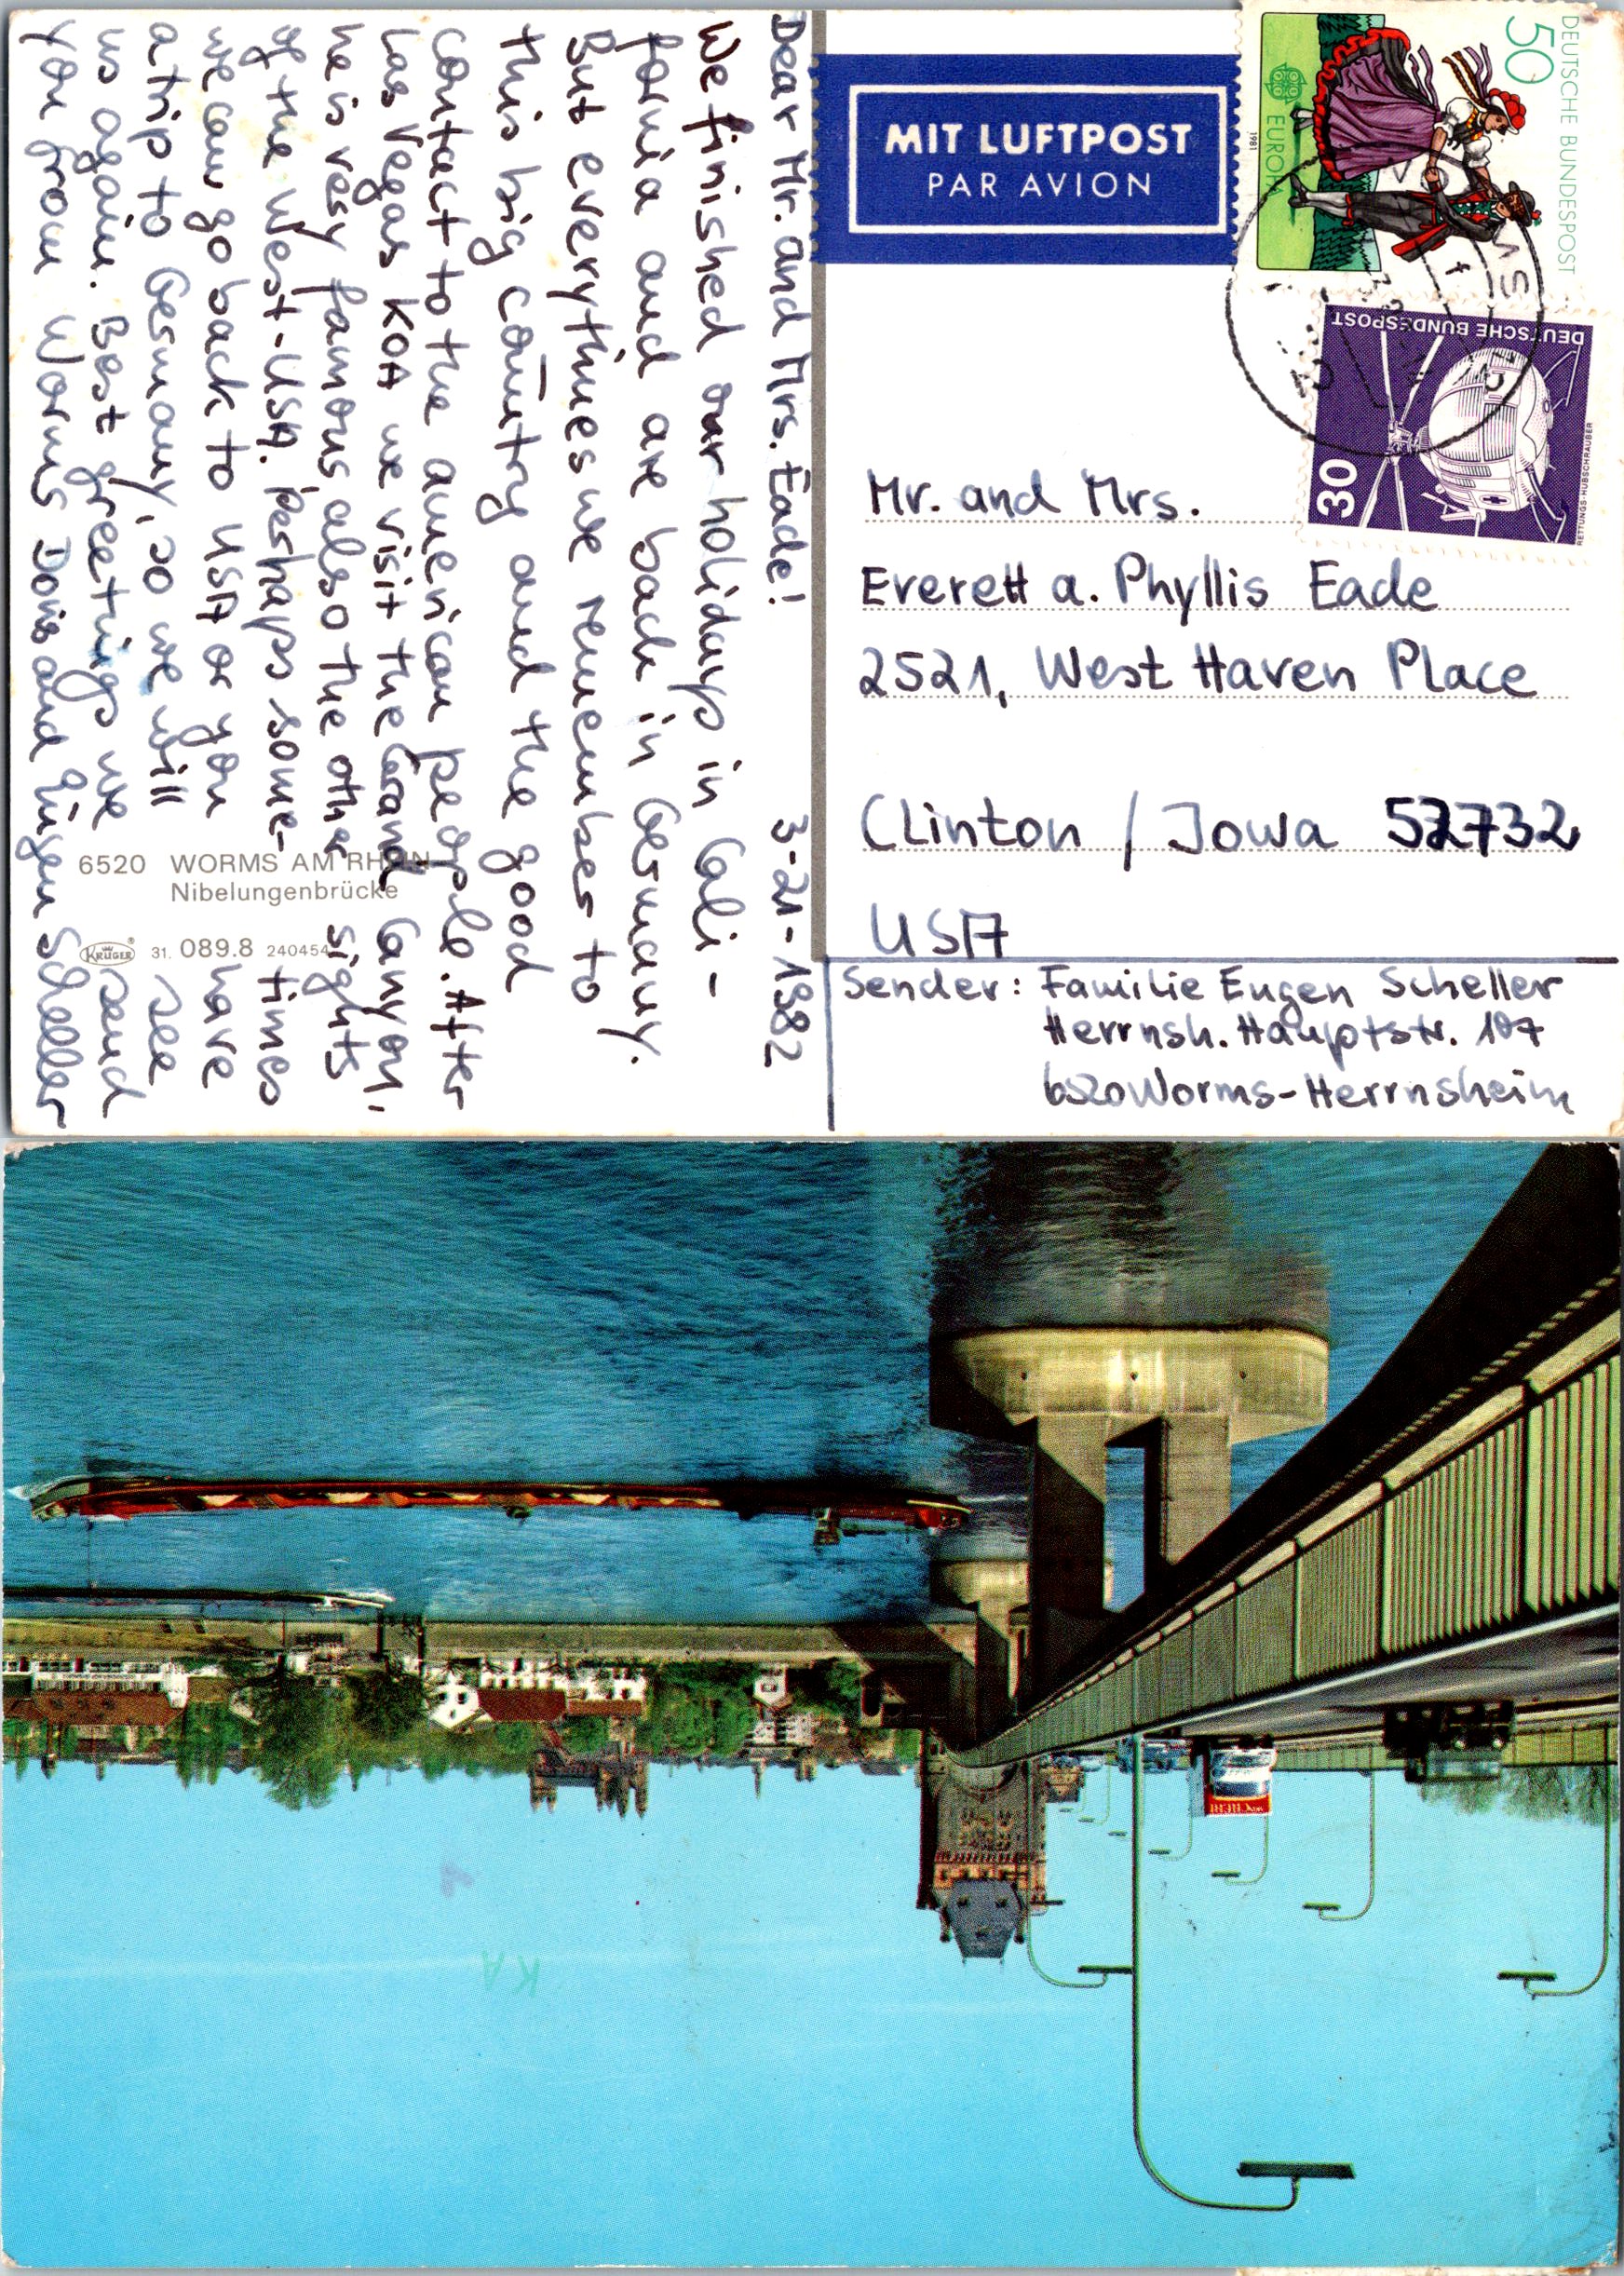 Dear Mr. and Mrs. Eade! 3-21-1982
We finished our holidays in Cali-
fornia and are back in Germany.
But everytimes we remember to
this big country and the good
contact to the american people. After
Las Vegas KOA we visit the Grand Canyon.
he is very famous, also the other sights
of the West-USA. Perhaps some- times
we can go back to USA or you have
a trip to Germany, so we will see
us again. Best greetings we send
you from Worms Doris and Eugen Scheller
6520 WORMS AM RHEIN
Nibelungenbrücke
KRÜGER 31. 089.8 240454
MIT LUFTPOST
PAR AVION
DEUTSCHE BUNDESPOST
50
EUROPA
1981
DEUTSCHE BUNDESPOST
30
RETTUNGS-HUBSCHRAUBER
Mr. and Mrs.
Everett a. Phyllis Eade
2521, West Haven Place
Clinton / Jowa 52732
USA
Sender: Familie Eugen Scheller
Herrnsh. Hauptstr. 107
6520 Worms-Herrnsheim
KA